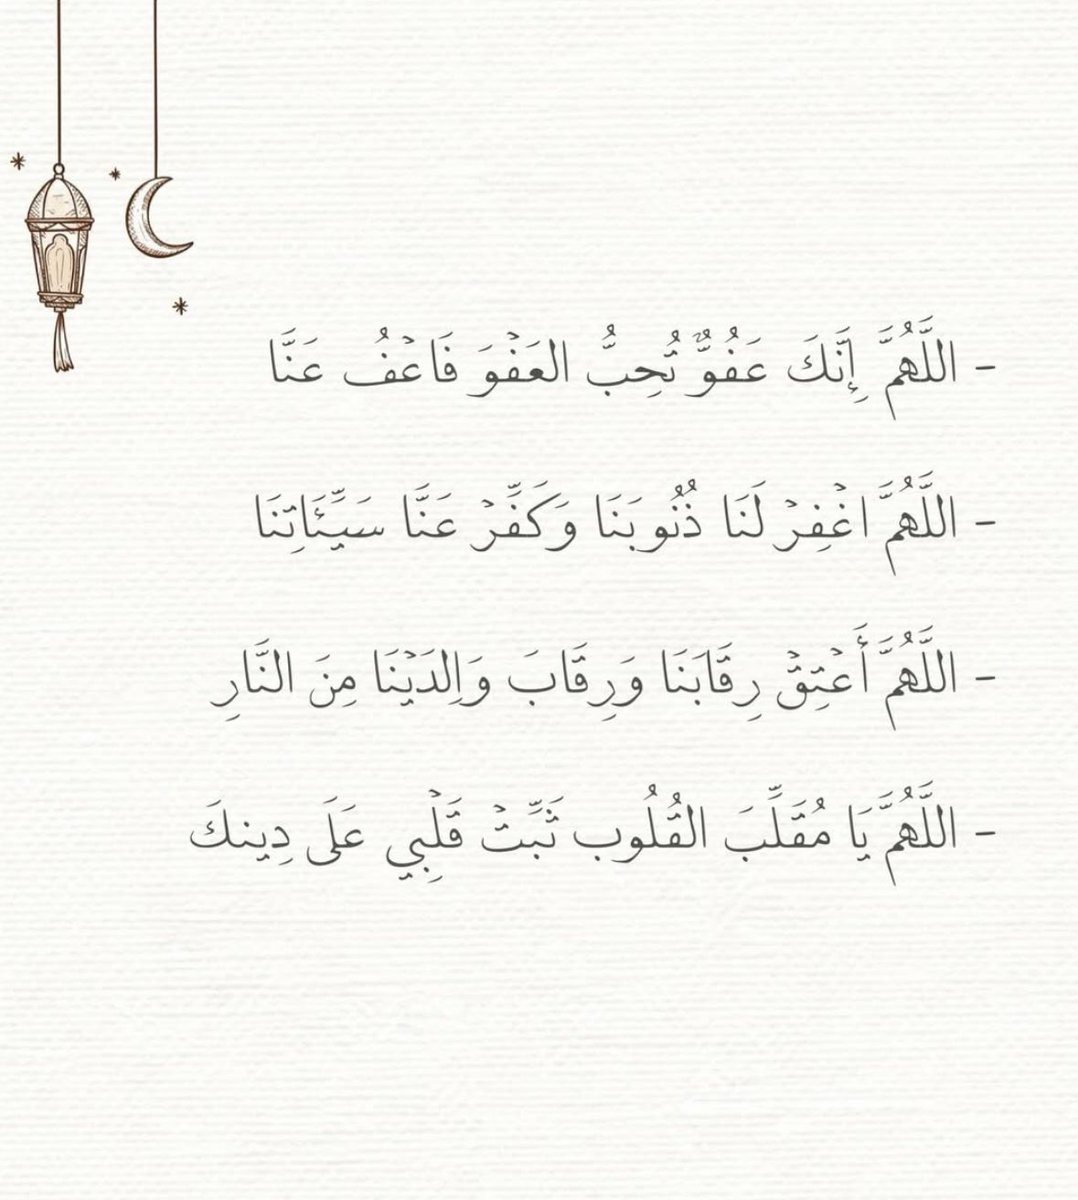 - اللَّهُمَّ إِنَّكَ عَفُوٌّ تُحِبُّ العَفْوَ فَاعْفُ عَنَّا
- اللَّهُمَّ اغْفِرْ لَنَا ذُنُوبَنَا وَكَفِّرْ عَنَّا سَيِّئَاتِنَا
- اللَّهُمَّ أَعْتِقْ رِقَابَنَا وَرِقَابَ وَالِدَيْنَا مِنَ النَّارِ
- اللَّهُمَّ يَا مُقَلِّبَ القُلُوب ثَبِّتْ قَلْبِي عَلَى دِينكَ